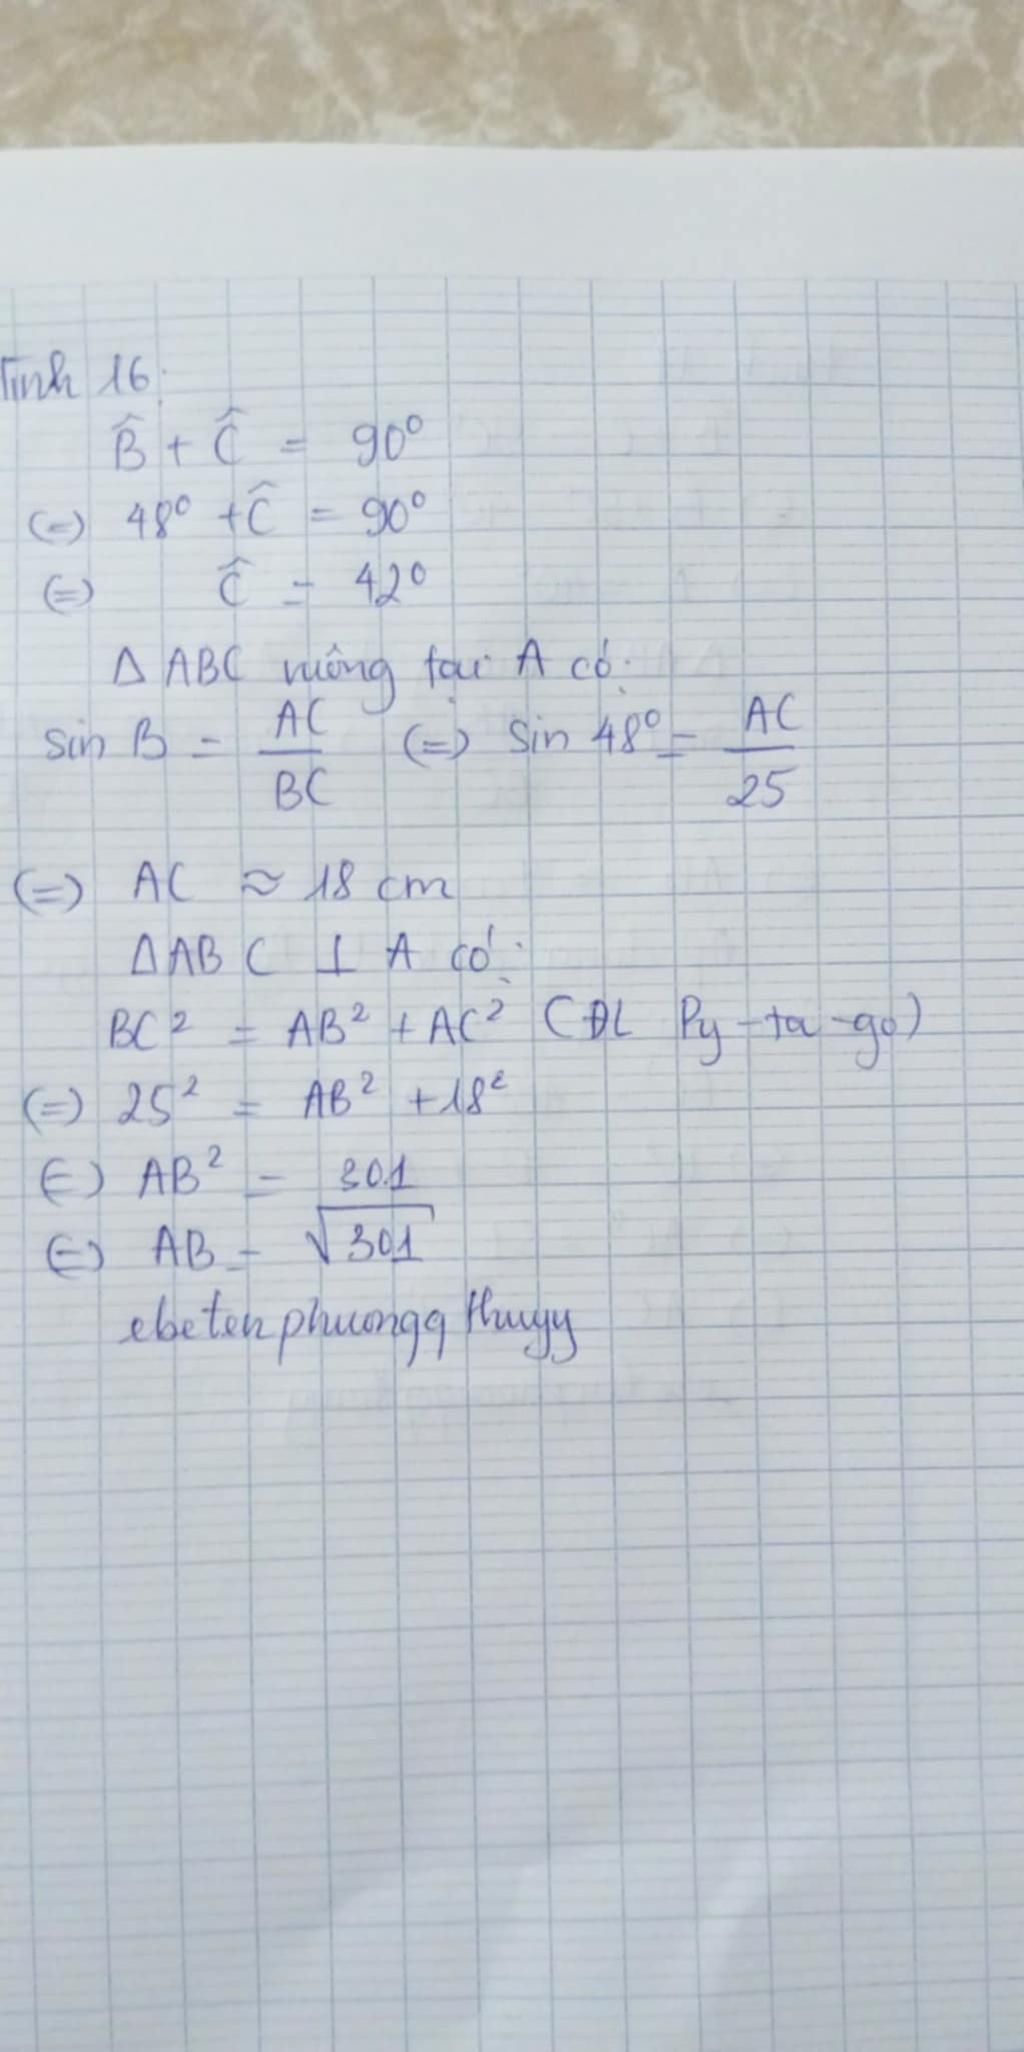 Hình 16:
B̂ + Ĉ = 90°
(=) 48° + Ĉ = 90°
(=) Ĉ = 42°
Δ ABC vuông tại A có:
sin B = AC/BC (=) sin 48° = AC/25
(=) AC ≈ 18 cm
ΔABC ⊥ A có:
BC² = AB² + AC² (ĐL Py-ta-go)
(=) 25² = AB² + 18²
(=) AB² = 301
(=) AB = √301
ebetenphuongq thuyy